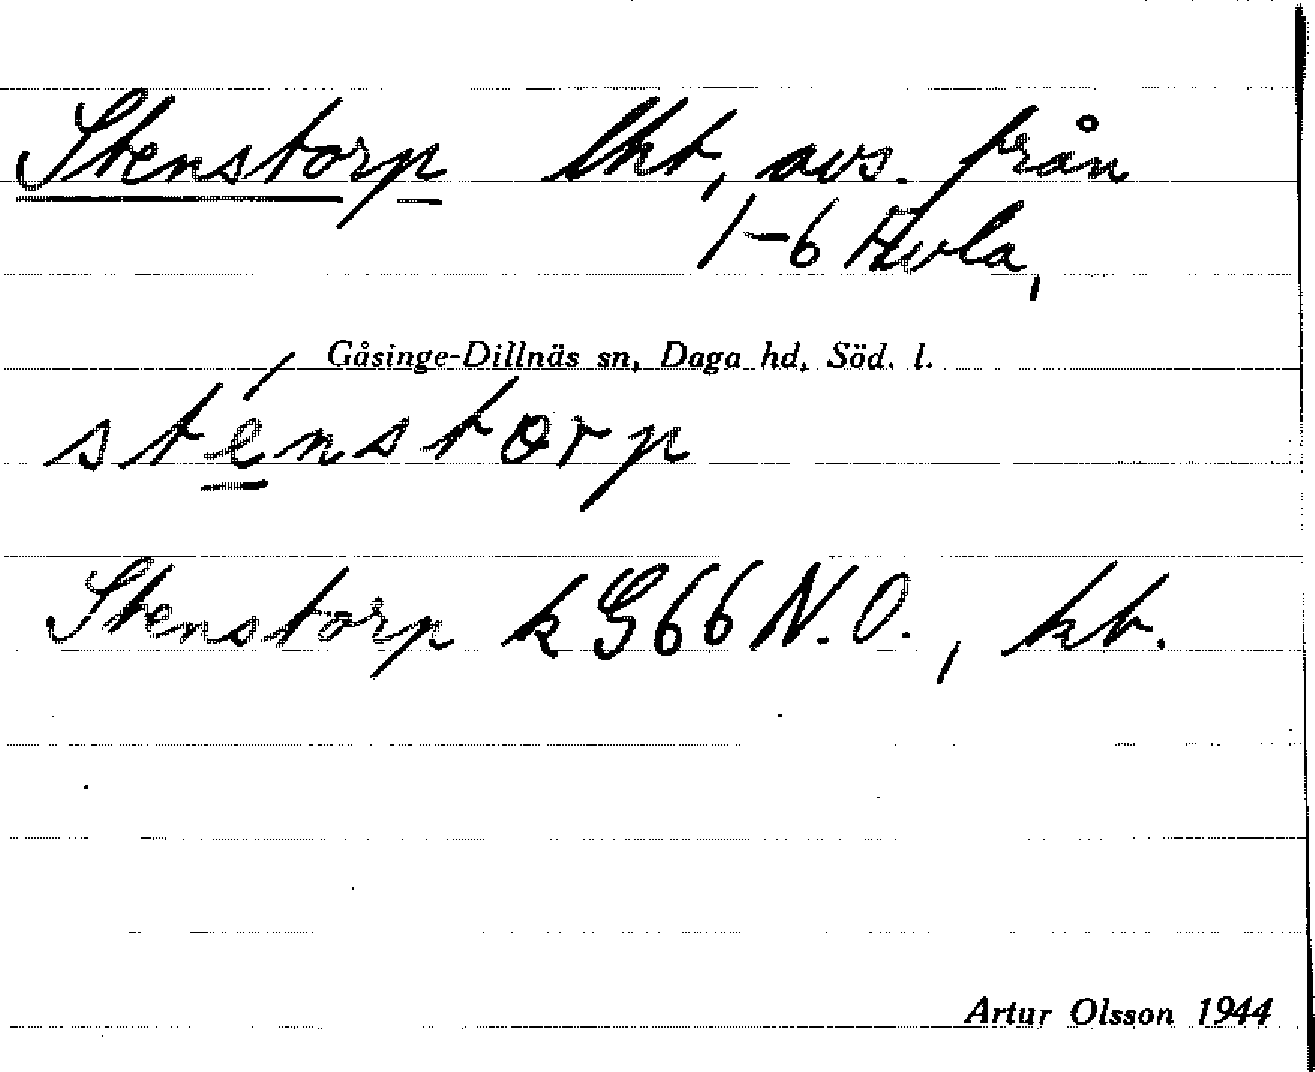 Stenstorp lht, avs. från
1-6 Hvla,
Gåsinge-Dillnäs sn, Daga hd, Söd. l.
sténstorp
Stenstorp k G66 N.O., kt.
Artur Olsson 1944